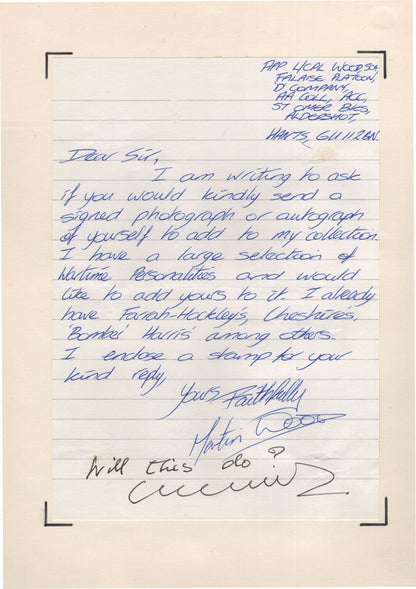 APP L/CPL WOOD, SG
FALAISE PLATOON,
D COMPANY,
AA COLL, ACC,
ST OMER BKS,
ALDERSHOT,
HANTS, GU11 2BN.
Dear Sir,
I am writing to ask
if you would kindly send a
signed photograph or autograph
of yourself to add to my collection.
I have a large selection of
Wartime Personalities and would
like to add yours to it. I already
have Farrah-Hockley's, Cheshires,
'Bomber' Harris' among others.
I enclose a stamp for your
kind reply,
Yours Faithfully
Martin
Will this do?